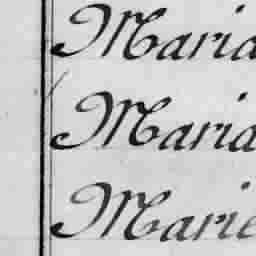 Maria
Maria
Marie